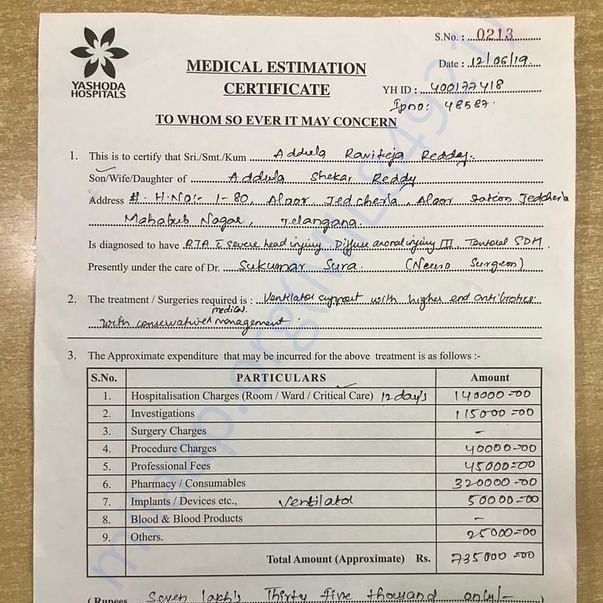 S.No.: 0213
YASHODA
HOSPITALS
MEDICAL ESTIMATION
CERTIFICATE
Date: 12/06/19
YH ID: 400177418
Ipno: 48587
TO WHOM SO EVER IT MAY CONCERN
1. This is to certify that Sri./Smt./Kum Addula Raviteja Reddy.
Son/Wife/Daughter of Addula Shekar Reddy
Address #. H.No:- 1-80, Aloor Jedcherla, Aloor Jedcherla
Mahabub Nagar, Telangana.
Is diagnosed to have RTA severe head injury Diffuse axonal injury III Tentorial SDH.
Presently under the care of Dr. Sukumar Sura (Neuro Surgeon)
2. The treatment / Surgeries required is: Ventilator support with higher end antibiotics
with conservative medical management.
3. The Approximate expenditure that may be incurred for the above treatment is as follows :-
S.No. PARTICULARS Amount
1. Hospitalisation Charges (Room / Ward / Critical Care) 12 day's 140000=00
2. Investigations 115000=00
3. Surgery Charges –
4. Procedure Charges 40000=00
5. Professional Fees 45000=00
6. Pharmacy / Consumables 320000=00
7. Implants / Devices etc., Ventilator 50000=00
8. Blood & Blood Products –
9. Others. 25000=00
Total Amount (Approximate) Rs. 735000=00
(Rupees Seven lakh's Thirty Five thousand only/-